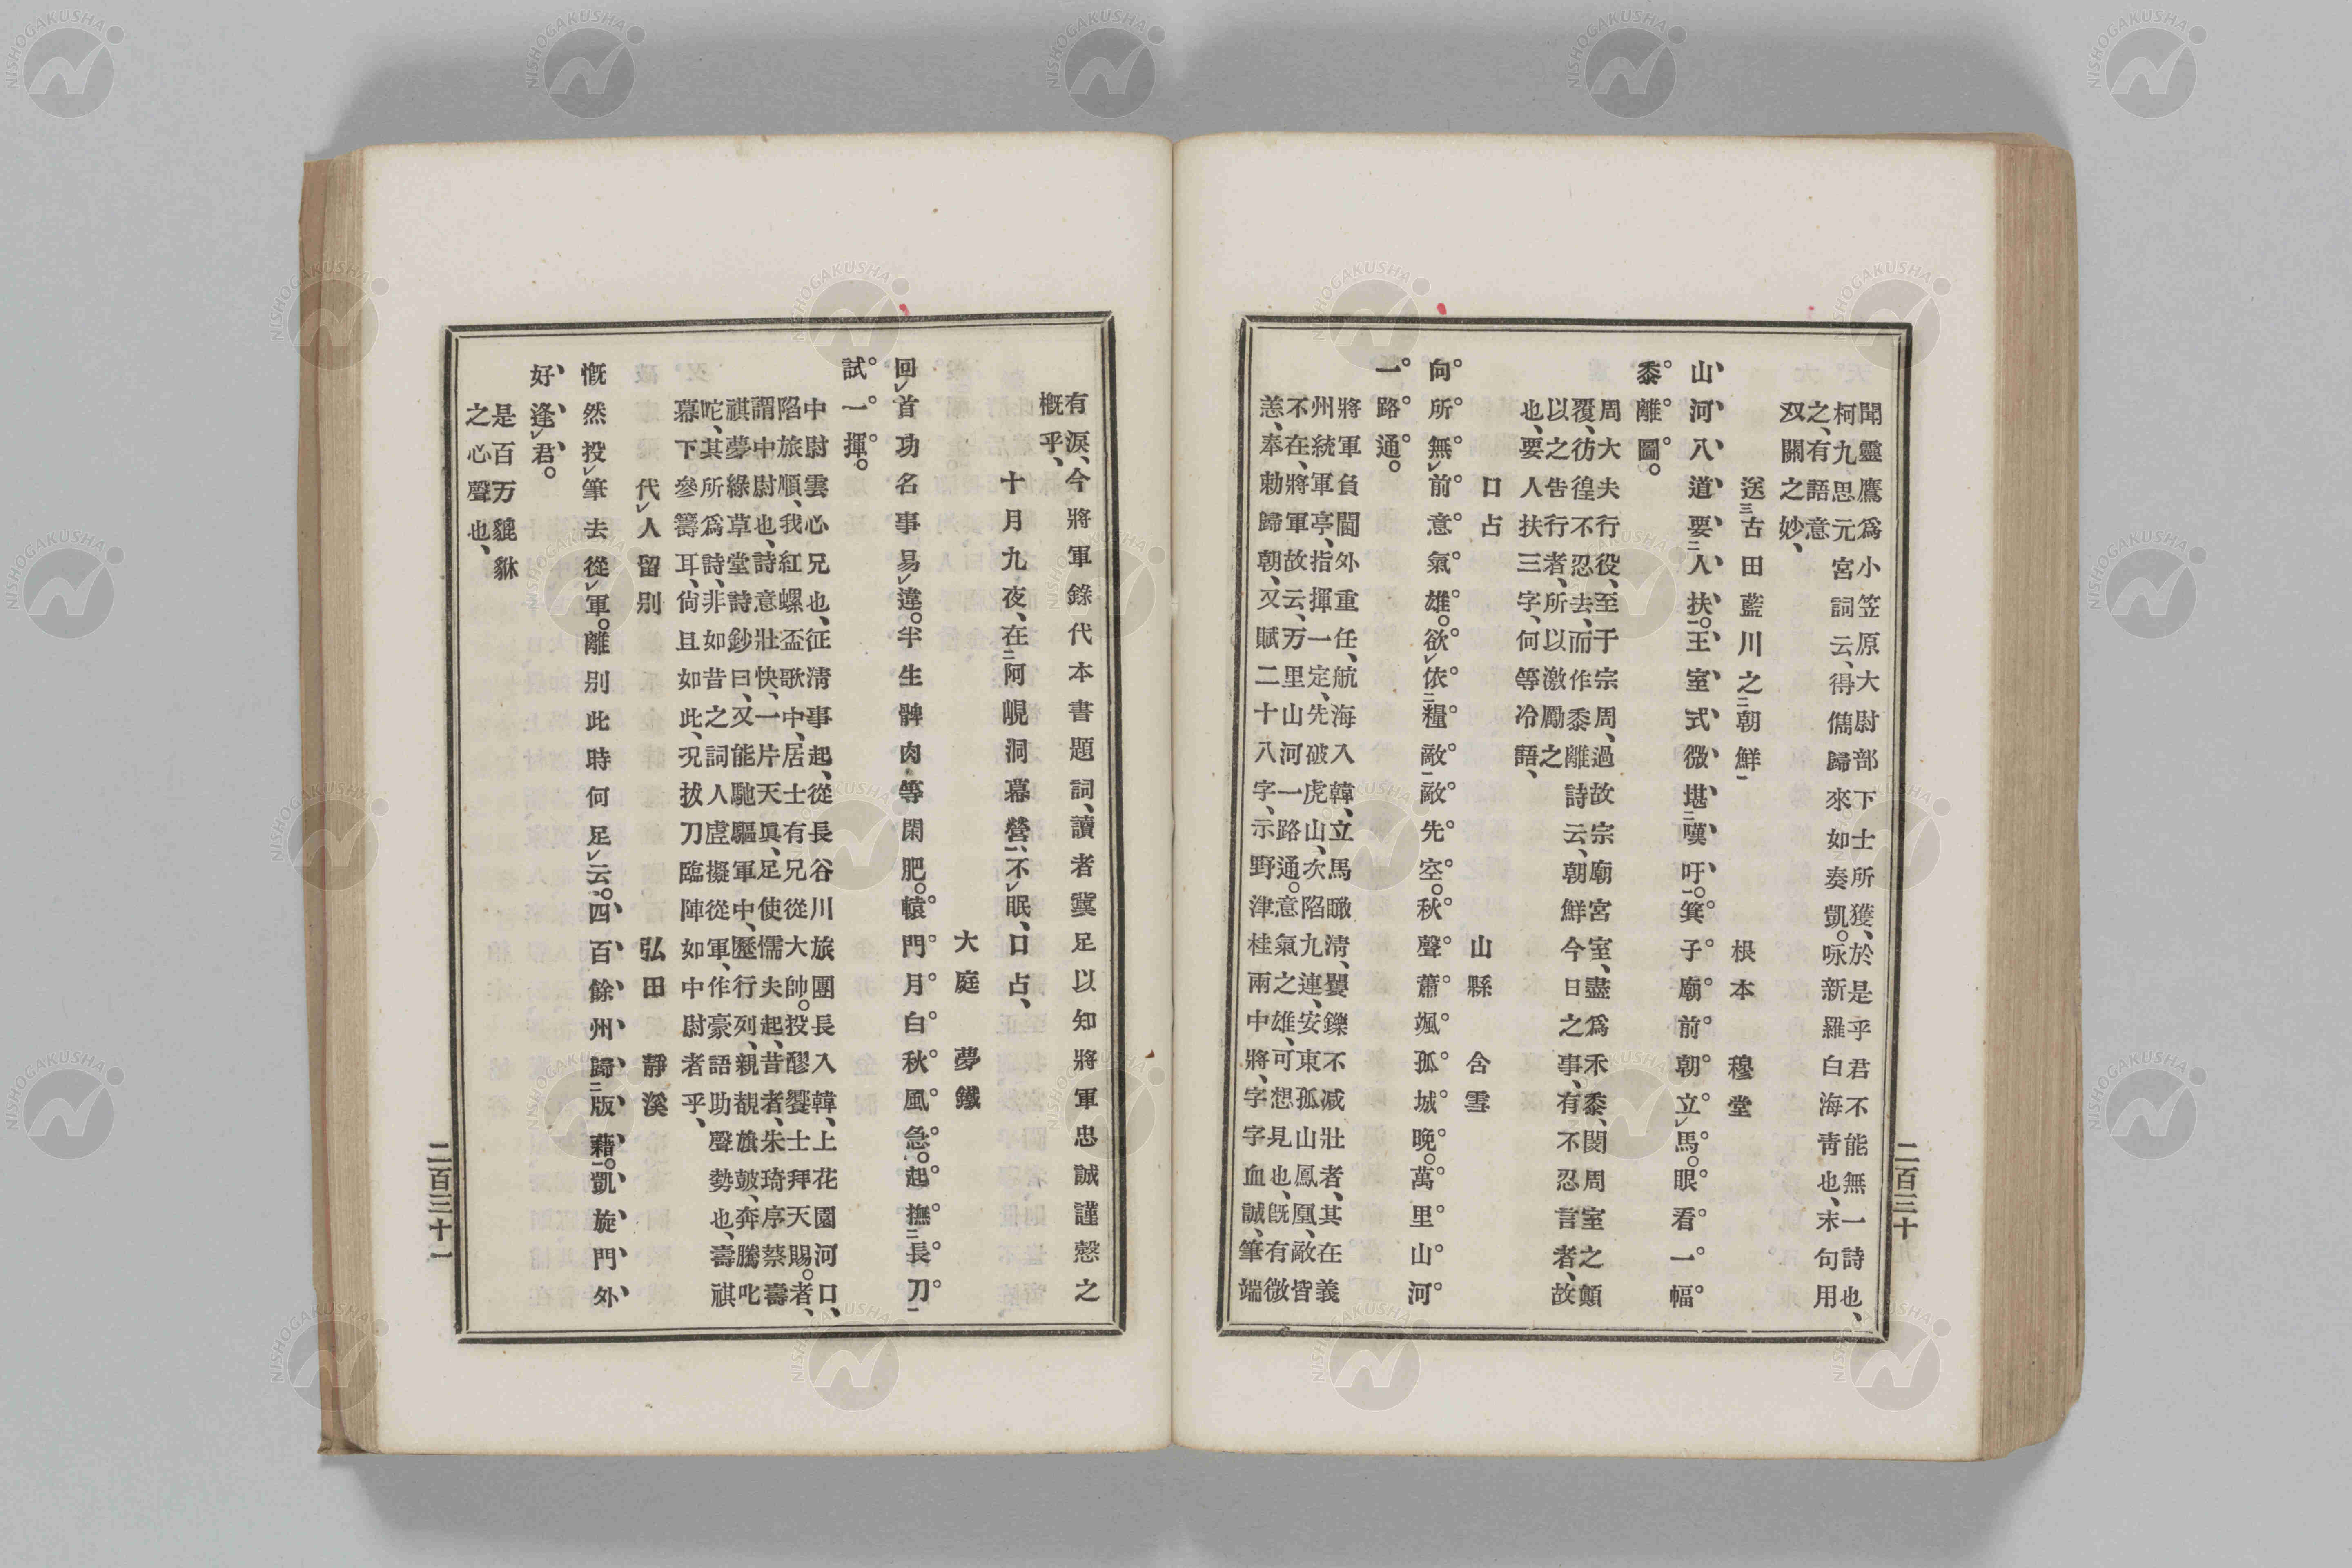 聞靈鷹爲小笠原大尉部下士所獲、於是乎君不能無一詩也、
柯九思元宮詞云、得儁歸來如奏凱。咏新羅白海靑也、末句用
之、有語意
双關之妙、
送三古田藍川之二朝鮮一 根本穆堂
山、河、八、道、要二人、扶一。王、室、式、微、堪二嘆、吁一。箕子廟前朝立馬。眼看一幅
黍離圖。
周大夫行役、至于宗周、過故宗廟宮室、盡爲禾黍、閔周室之顚
覆、彷徨不忍去、而作黍離詩云、朝鮮今日之事、有不忍言者、故
以之告行者、所以激勵之
也、要人扶三字、何等冷語、
口占 山縣含雪
向所無前意氣雄。欲依二糧敵一敵先空。秋聲蕭颯孤城晚。萬里山河
一路通。
將軍負閫外重任、航海入韓、立馬瞰淸、矍鑠不减壯者、其在義
州統軍亭、指揮一定、先破虎山、次陷九連、安東孤山鳳凰、敵皆
不在、將軍故云、万里山河一路通。意氣之雄、可想見也、旣有微
恙、奉勅歸朝、又賦二十八字、示野津桂兩中將、字字血誠、筆端
有淚、今將軍錄代本書題詞、讀者冀足以知將軍忠誠謹慤之
槪乎、
十月九夜、在二阿峴洞幕營一、不眠、口占、
大庭夢鐵
回首功名事易違。半生髀肉等閑肥。轅門月白秋風急。起撫二長刀一
試一揮。
中尉雲心兄也、征淸事起、從長谷川旅團長入韓、上花園河口、
陷旅順、我紅螺盃歌中、居士有兄從大帥。投醪饗士拜天賜。者、
謂中尉也、詩意壯快、一片天眞、足使懦夫起、昔者、朱琦序蔡壽
祺夢綠草堂詩鈔曰、又能馳驅軍中、歷行列、親覩旗皷、奔騰叱
咤、其所爲詩、非如昔之詞人虛擬從軍、作豪語助聲勢也、壽祺
幕下參籌耳、尙且如此、況拔刀臨陣如中尉者乎、
代人留別 弘田靜溪
慨然投筆去從軍。離別此時何足云。四、百、餘、州、歸二版、藉一。凱、旋、門、外、
好、逢、君。
是百万貔貅
之心聲也、
二百三十
二百三十一